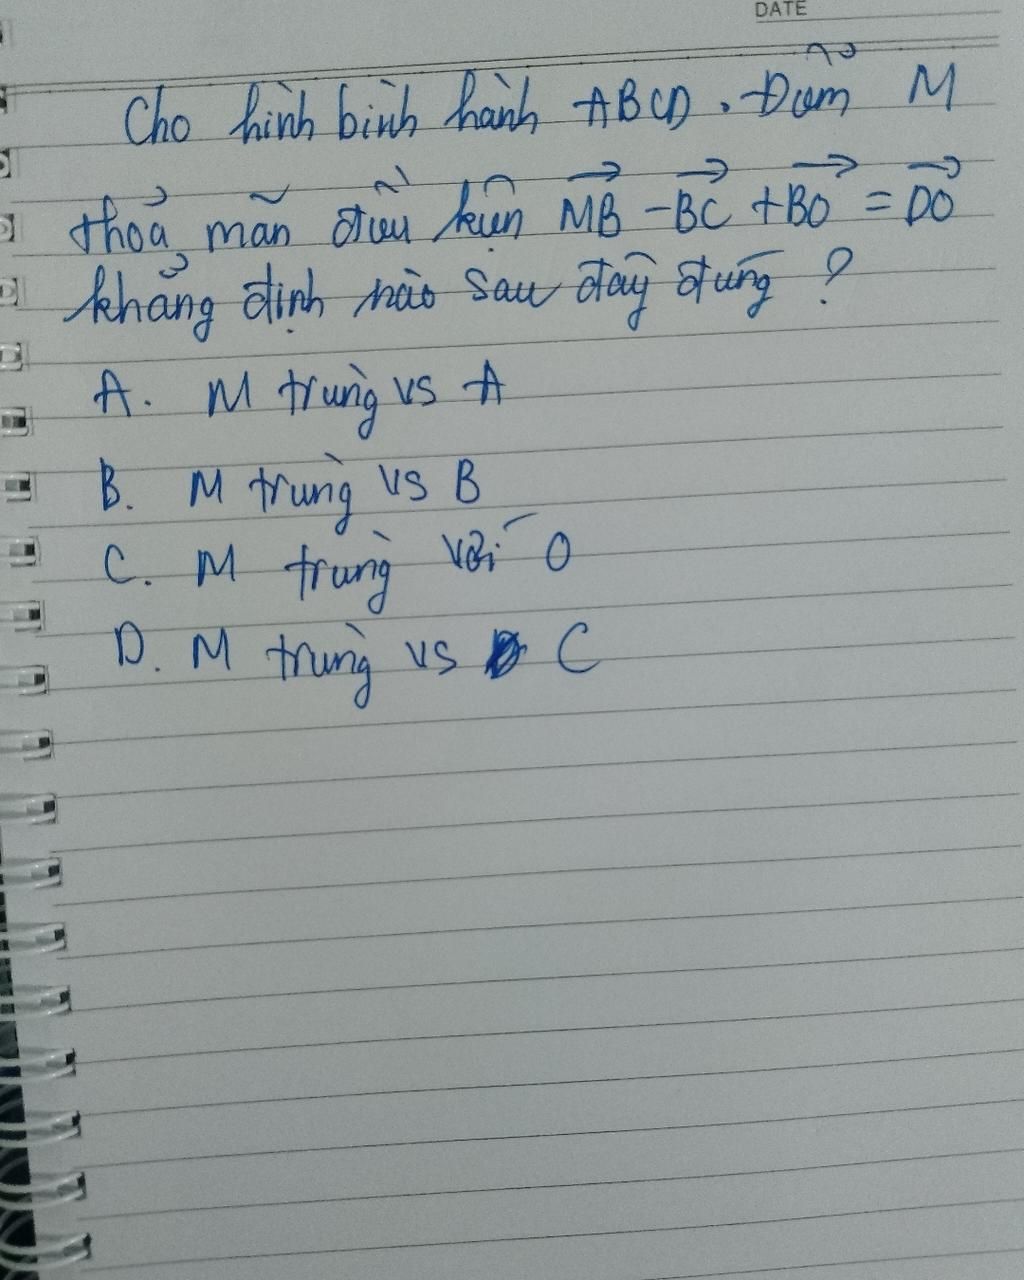 DATE
Cho hình bình hành ABCD. Điểm M
thoả mãn điều kiện MB - BC + BO = DO
khẳng định nào sau đây đúng ?
A. M trùng vs A
B. M trùng vs B
C. M trùng với O
D. M trùng vs C